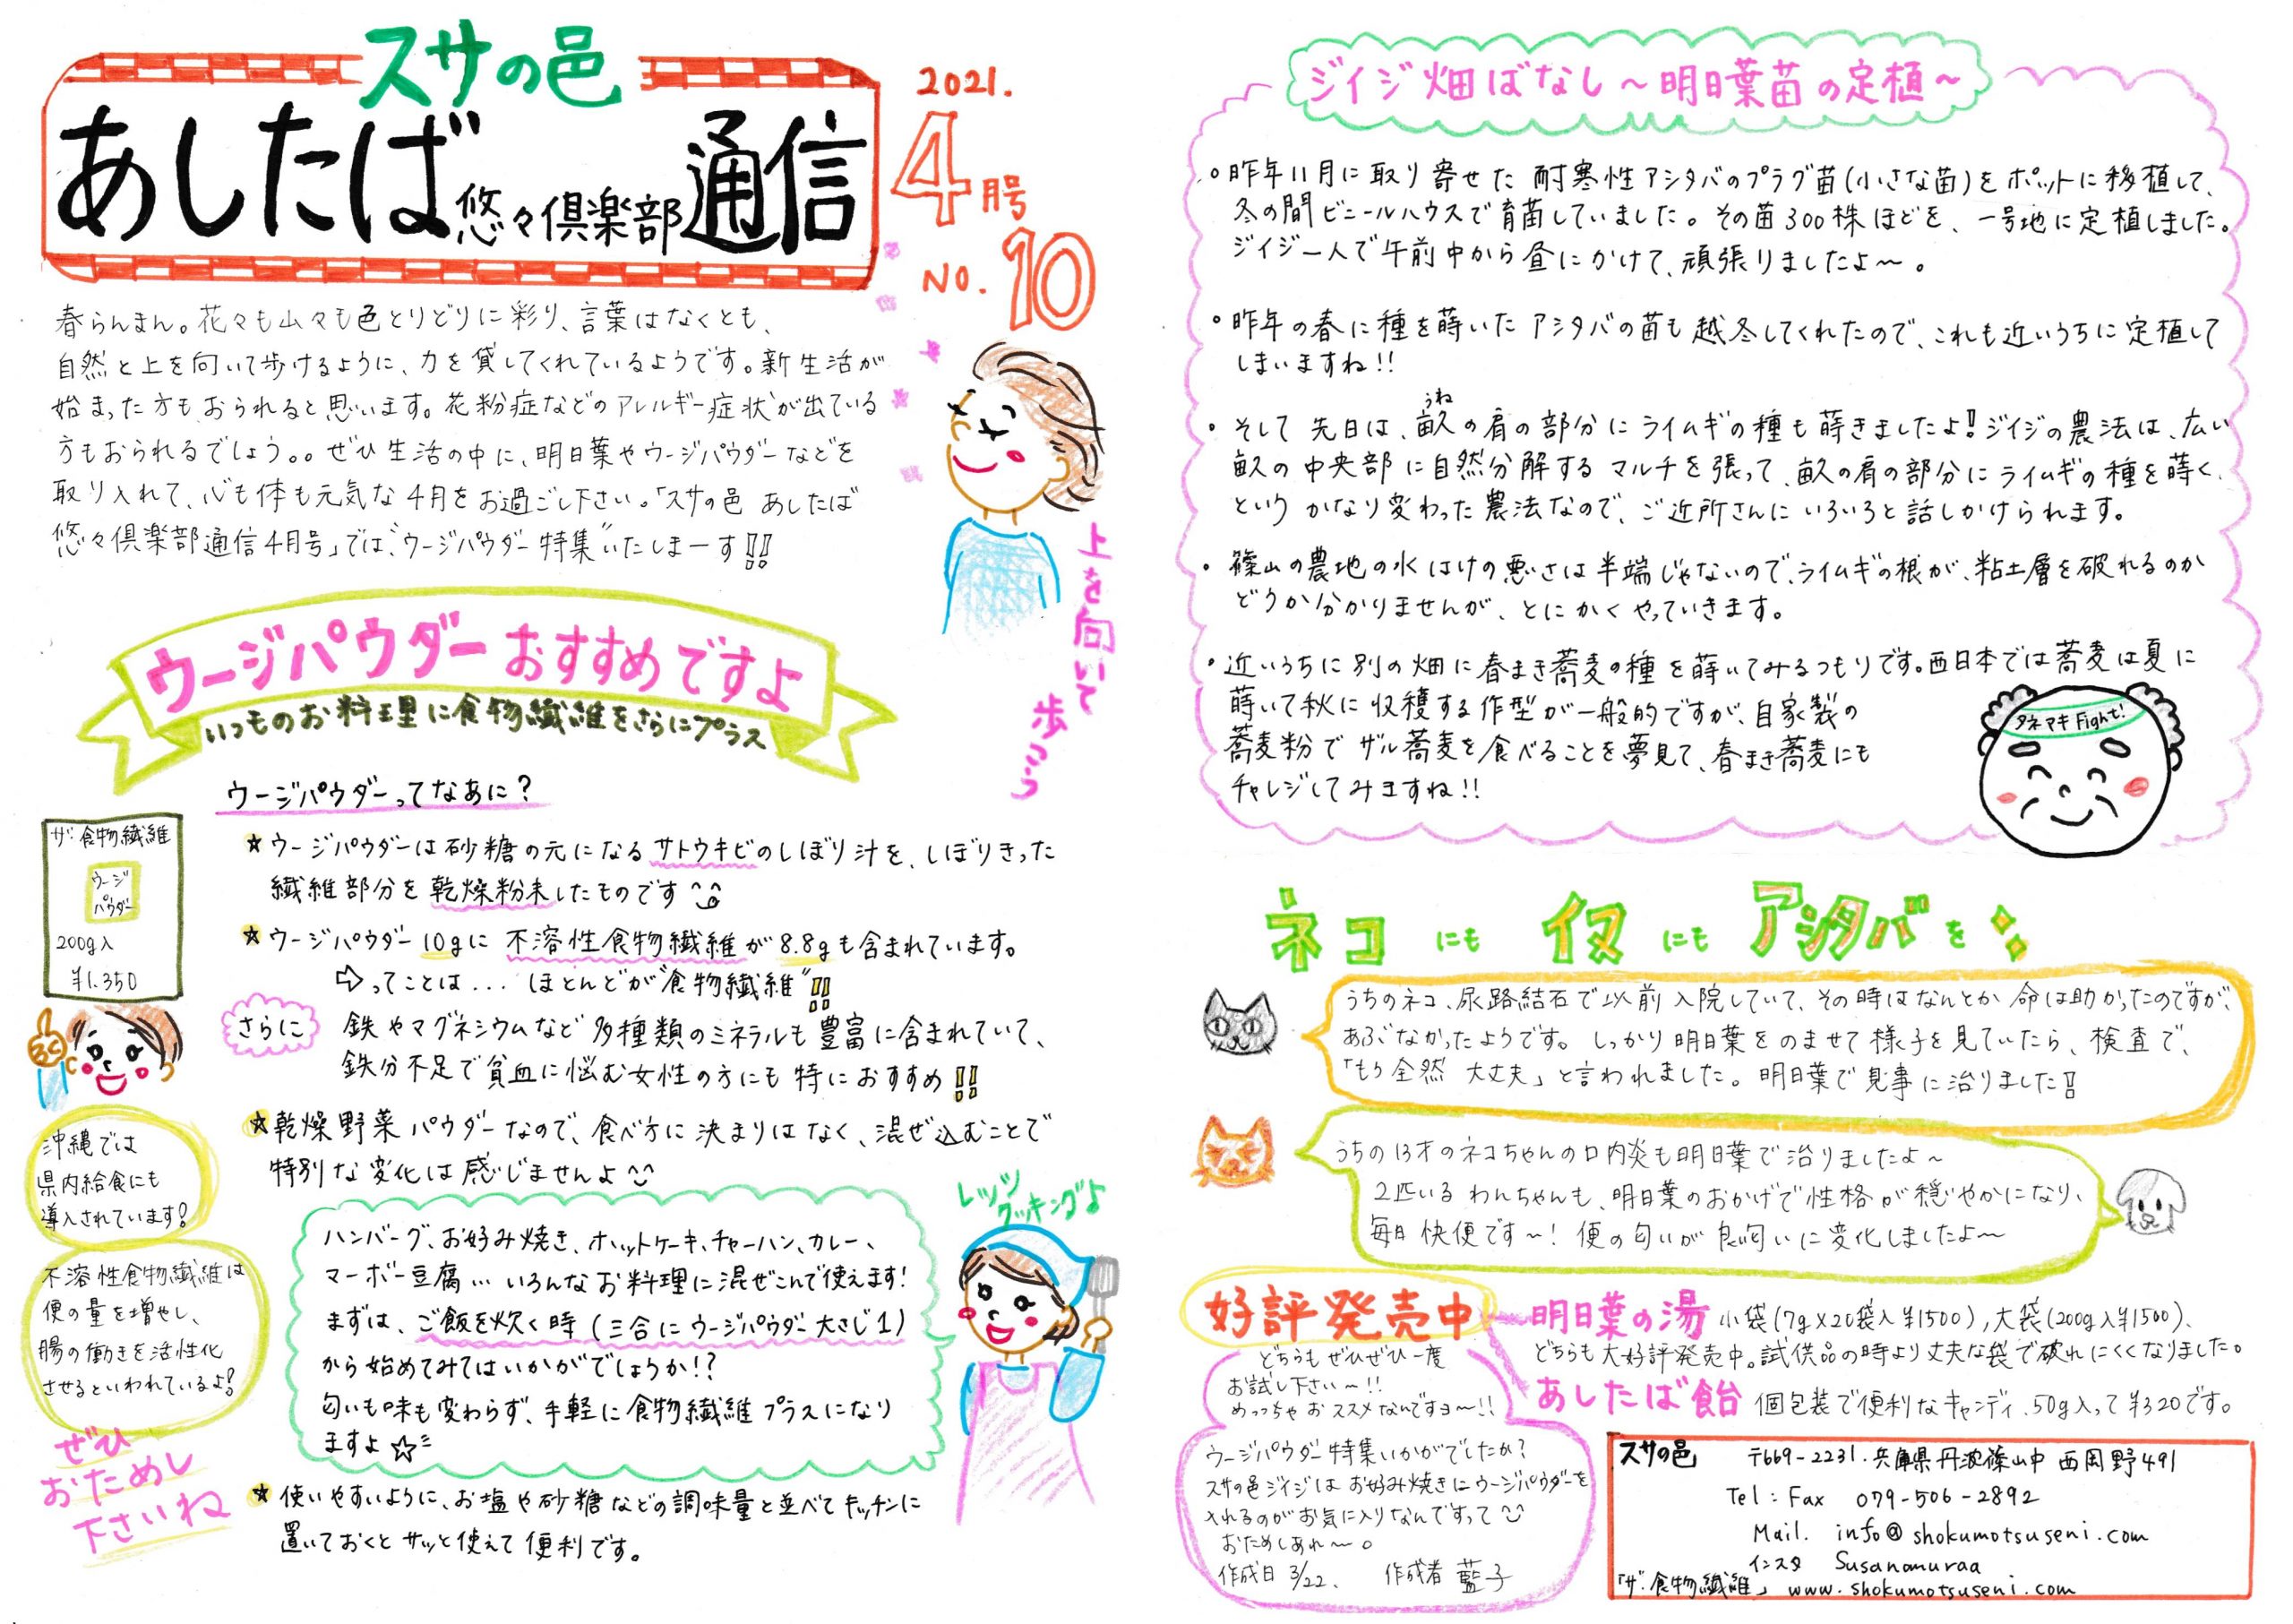 スサの邑
あしたば悠々倶楽部通信
2021.
4月号
NO.10
春らんまん。花々も山々も色とりどりに彩り、言葉はなくとも、
自然と上を向いて歩けるように、力を貸してくれているようです。新生活が
始まった方もおられると思います。花粉症などのアレルギー症状が出ている
方もおられるでしょう。。ぜひ生活の中に、明日葉やウージパウダーなどを
取り入れて、心も体も元気な4月をお過ごし下さい。「スサの邑 あしたば
悠々倶楽部通信4月号」では、“ウージパウダー特集”いたしまーす!!
上を向いて
歩こう
ウージパウダーおすすめですよ
いつものお料理に食物繊維をさらにプラス
ウージパウダーってなあに?
ザ・食物繊維
ウージ
パウダー
200g入
¥1.350
☆ウージパウダーは砂糖の元になるサトウキビのしぼり汁を、しぼりきった
繊維部分を乾燥粉末したものです
☆ウージパウダー10gに不溶性食物繊維が8.8gも含まれています。
⇨ってことは... ほとんどが“食物繊維”!!
さらに 鉄やマグネシウムなど多種類のミネラルも豊富に含まれていて、
鉄分不足で貧血に悩む女性の方にも特におすすめ!!
☆乾燥野菜パウダーなので、食べ方に決まりはなく、混ぜ込むことで
特別な変化は感じませんよ
沖縄では
県内給食にも
導入されています!
不溶性食物繊維は
便の量を増やし、
腸の働きを活性化
させるといわれているよ!
ぜひ
おためし
下さいね
レッツ
クッキング♪
ハンバーグ、お好み焼き、ホットケーキ、チャーハン、カレー、
マーボー豆腐… いろんなお料理に混ぜこんで使えます!
まずは、ご飯を炊く時(三合にウージパウダー大さじ1)
から始めてみてはいかがでしょうか!?
匂いも味も変わらず、手軽に食物繊維プラスになり
ますよ☆
☆使いやすいように、お塩や砂糖などの調味量と並べてキッチンに
置いておくとサッと使えて便利です。
ジイジ畑ばなし~明日葉苗の定植~
。昨年11月に取り寄せた耐寒性アシタバのプラグ苗(小さな苗)をポットに移植して、
冬の間ビニールハウスで育苗していました。その苗300株ほどを、一号地に定植しました。
ジイジ一人で午前中から昼にかけて、頑張りましたよ~。
・昨年の春に種を蒔いたアシタバの苗も越冬してくれたので、これも近いうちに定植して
しまいますね!!
うね
・そして先日は、畝の肩の部分にライムギの種も蒔きましたよ!ジイジの農法は、広い
畝の中央部に自然分解するマルチを張って、畝の肩の部分にライムギの種を蒔く、
というかなり変わった農法なので、ご近所さんにいろいろと話しかけられます。
・篠山の農地の水はけの悪さは半端じゃないので、ライムギの根が、粘土層を破れるのか
どうか分かりませんが、とにかくやっていきます。
・近いうちに別の畑に春まき蕎麦の種を蒔いてみるつもりです。西日本では蕎麦は夏に
蒔いて秋に収穫する作型が一般的ですが、自家製の
蕎麦粉でザル蕎麦を食べることを夢見て、春まき蕎麦にも
チャレジしてみますね!!
タネマキ Fight!
ネコにもイヌにもアシタバを
うちのネコ、尿路結石で以前入院していて、その時はなんとか命は助かったのですが、
あぶなかったようです。しっかり明日葉をのませて様子を見ていたら、検査で、
「もう全然大丈夫」と言われました。明日葉で見事に治りました!
うちの13才のネコちゃんの口内炎も明日葉で治りましたよ~
2匹いるわんちゃんも、明日葉のおかげで性格が穏やかになり、
毎日快便です~! 便の匂いが良い匂いに変化しましたよ~
好評発売中
明日葉の湯 小袋(7g×20袋入¥1500),大袋(200g入¥1500)、
どちらも大好評発売中。試供品の時より丈夫な袋で破れにくくなりました。
あしたば飴 個包装で便利なキャンディ、50g入って¥320です。
どちらもぜひぜひ一度
お試し下さい~!!
めっちゃおススメなんですヨ~!!
ウージパウダー特集いかがでしたか?
スサの邑ジイジはお好み焼きにウージパウダーを
入れるのがお気に入りなんですって
おためしあれ~。
作成日 3/22、 作成者 藍子
スサの邑 〒669-2231.兵庫県丹波篠山市西岡野491
Tel:Fax 079-506-2892
Mail. info@shokumotsuseni.com
インスタ Susanomuraa
「ザ・食物繊維」 www.shokumotsuseni.com